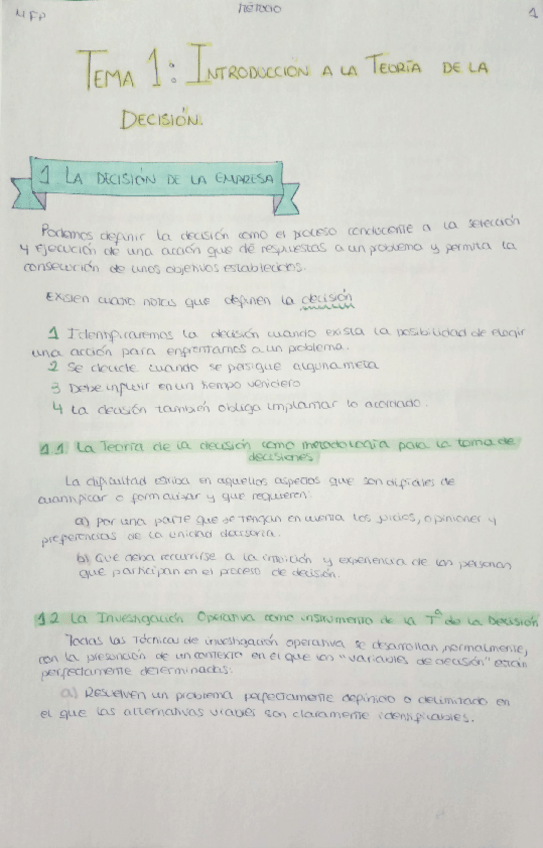 MFP
MÉTODO
1
TEMA 1: INTRODUCCIÓN A LA TEORÍA DE LA
DECISIÓN.
1 LA DECISIÓN DE LA EMPRESA
Podemos definir la decisión como el proceso conducente a la selección
y ejecución de una acción que dé respuestas a un problema y permita la
consecución de unos objetivos establecidos.
Existen cuatro notas que definen la decisión
1 Identificaremos la decisión cuando exista la posibilidad de elegir
una acción para enfrentarnos a un problema.
2 Se decide cuando se persigue alguna meta
3 Debe influir en un tiempo venidero
4 La decisión también obliga implantar lo acordado.
1.1 La Teoría de la decisión como metodología para la toma de
decisiones
La dificultad estriba en aquellos aspectos que son difíciles de
cuantificar o formalizar y que requieren:
a) Por una parte que se tengan en cuenta los juicios, opiniones y
preferencias de la unidad decisoria.
b) Que deba recurrirse a la intuición y experiencia de las personas
que participan en el proceso de decisión.
1.2 La Investigación Operativa como instrumento de la Tª de la Decisión
Todas las técnicas de investigación operativa se desarrollan, normalmente,
con la presunción de un contexto en el que las "variables de decisión" están
perfectamente determinadas:
a) Resuelven un problema perfectamente definido o delimitado en
el que las alternativas viables son claramente identificables.